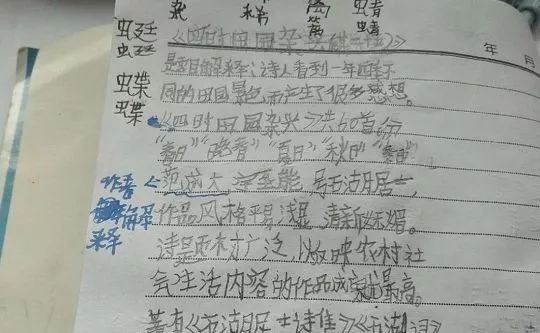 杂 稀 离 蜻
篱 蜻
蜓 蜓
《四时田园杂兴》
年 月
题目解释:诗人看到一年四季不
同的田园景色,而产生了很多感想。
蝶
蝶
《四时田园杂兴》共60首,分
“春日”“晚春”“夏日”“秋日”“冬日”
作者 范成大 字至能,号石湖居士,
解释 作品风格平易浅显、清新妩媚。
诗题材广泛,以反映农村社
会生活内容的作品成就最高。
著有《石湖居士诗集》《石湖词》